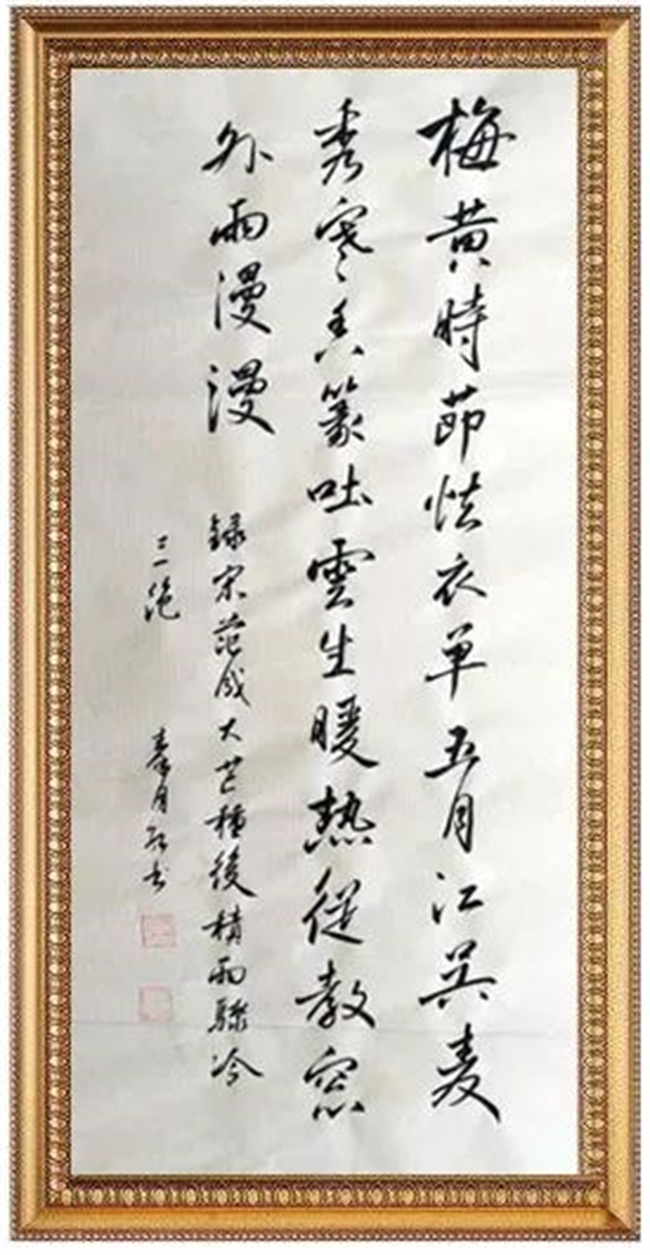 梅黄時節怯衣单五月江吴麦
秀寒香篆吐雲生暖熱從教窓
外雨漫漫
録宋范成大芒種後積雨驟冷
三绝
月书